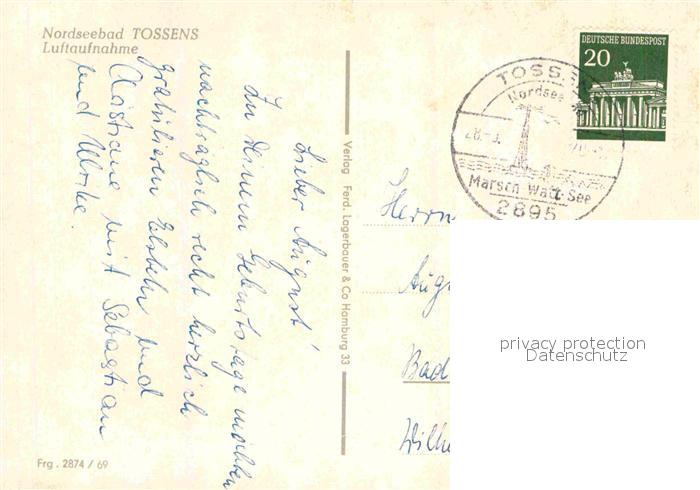 Nordseebad TOSSENS
Luftaufnahme
Lieber August!
Zu Deinem Geburtstage möchten
nachträglich recht herzlich
gratulieren Elsbeth und
mit Sebastian
und Ulrike.
Verlag Ferd. Lagerbauer & Co Hamburg 33
Frg. 2874 / 69
DEUTSCHE BUNDESPOST
20
TOSS
Nordsee
Marsch Watt See
2895
Herrn
Aug
Bad
Wilhe
privacy protection
Datenschutz